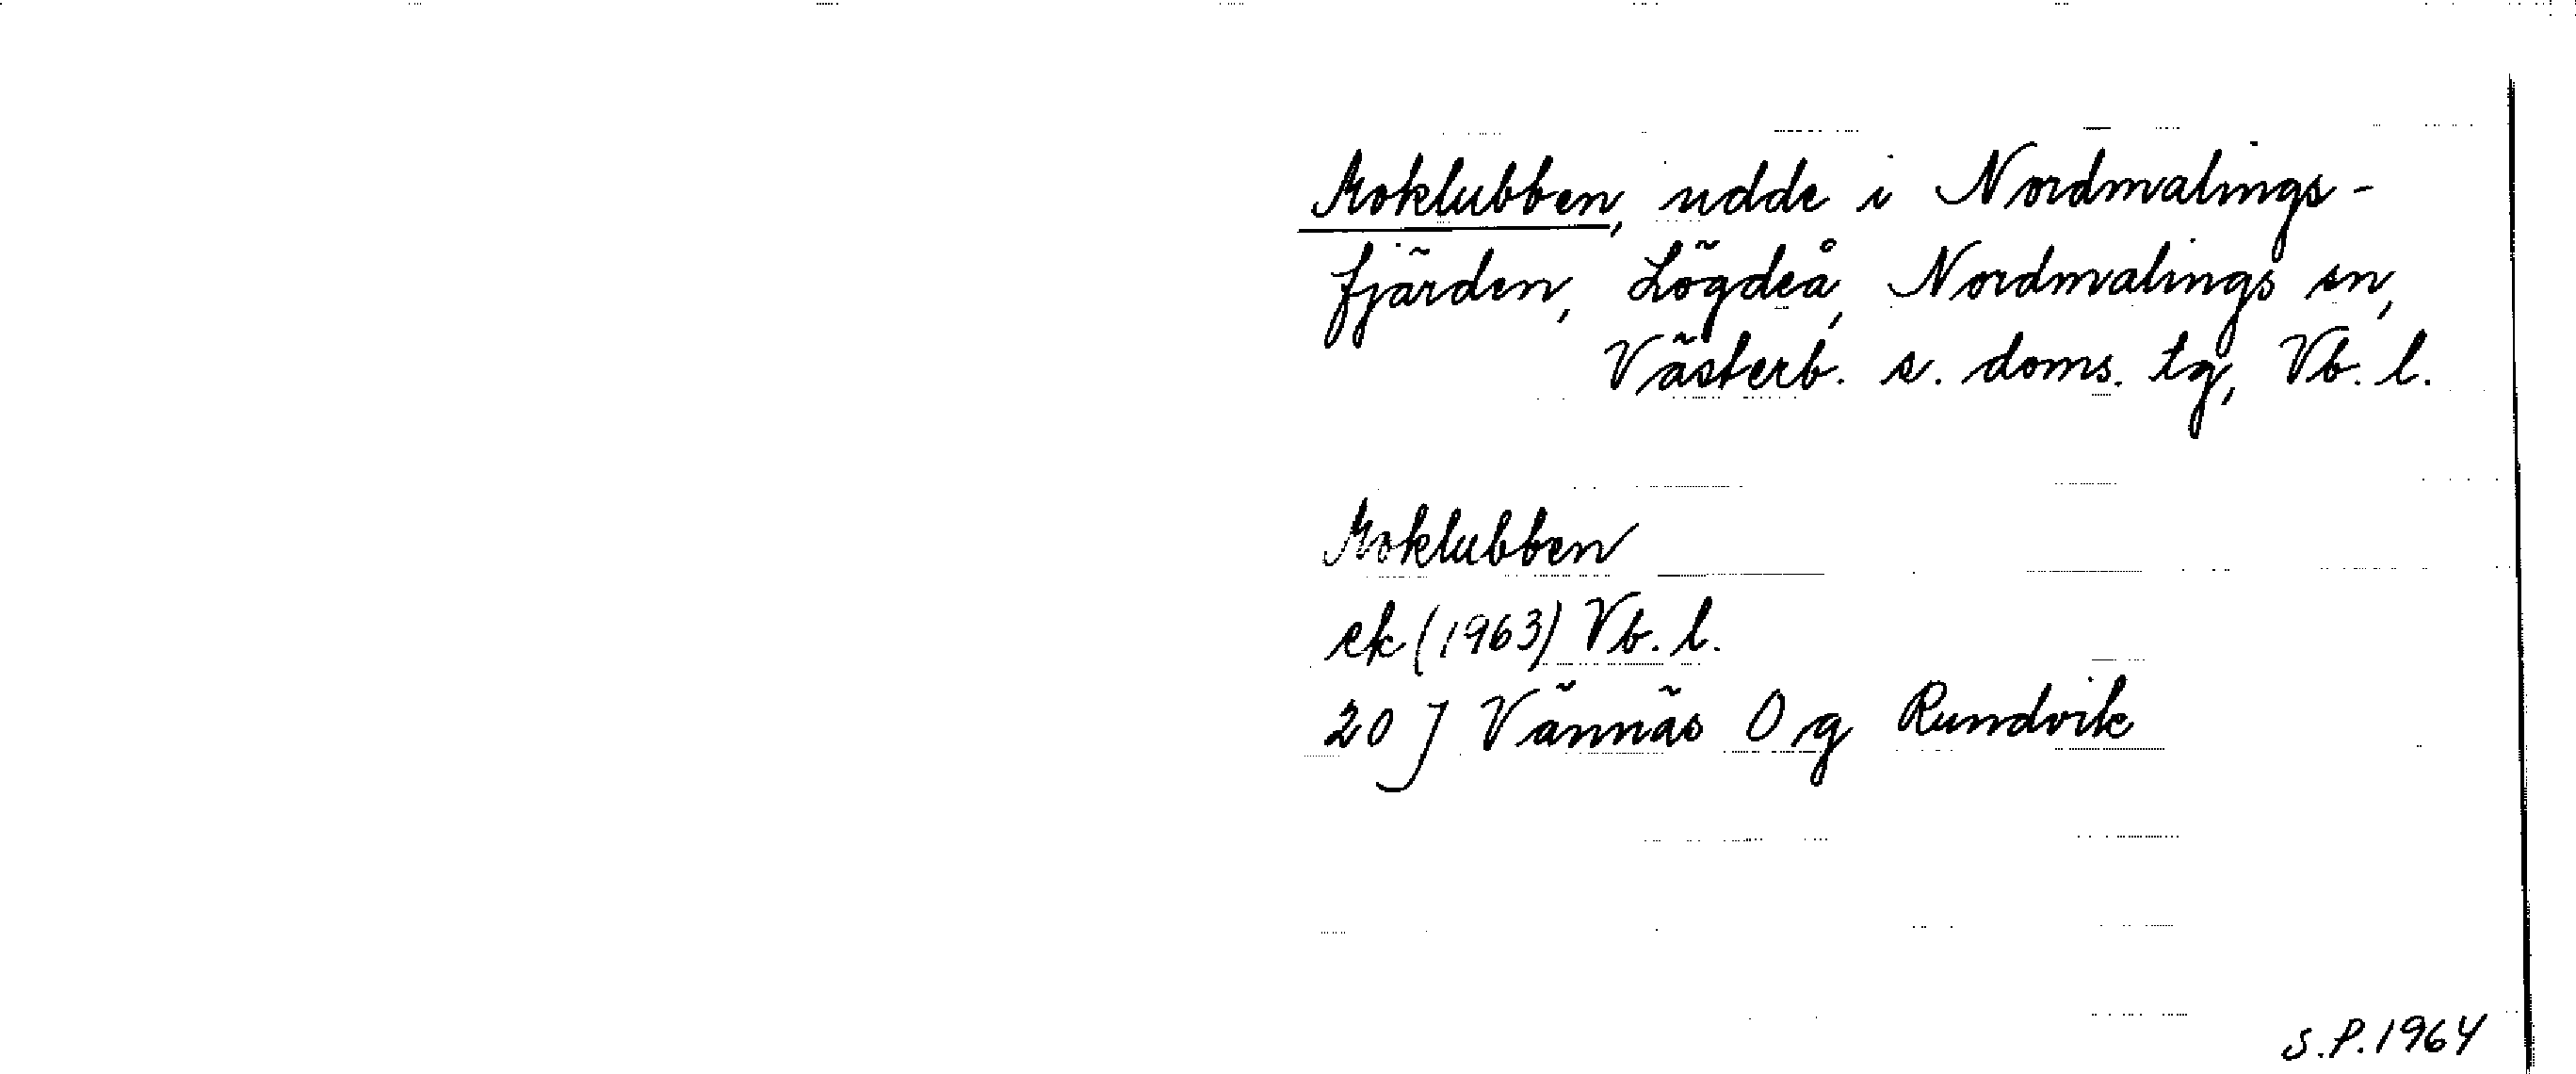 Moklubben, udde i Nordmalings-
fjärden, Lögdeå, Nordmalings sn,
Västerb. s. doms. tg, Vb. l.
Moklubben
ek (1963) Vb. l.
20 J Vännäs 0 g Rundvik
S.P. 1964